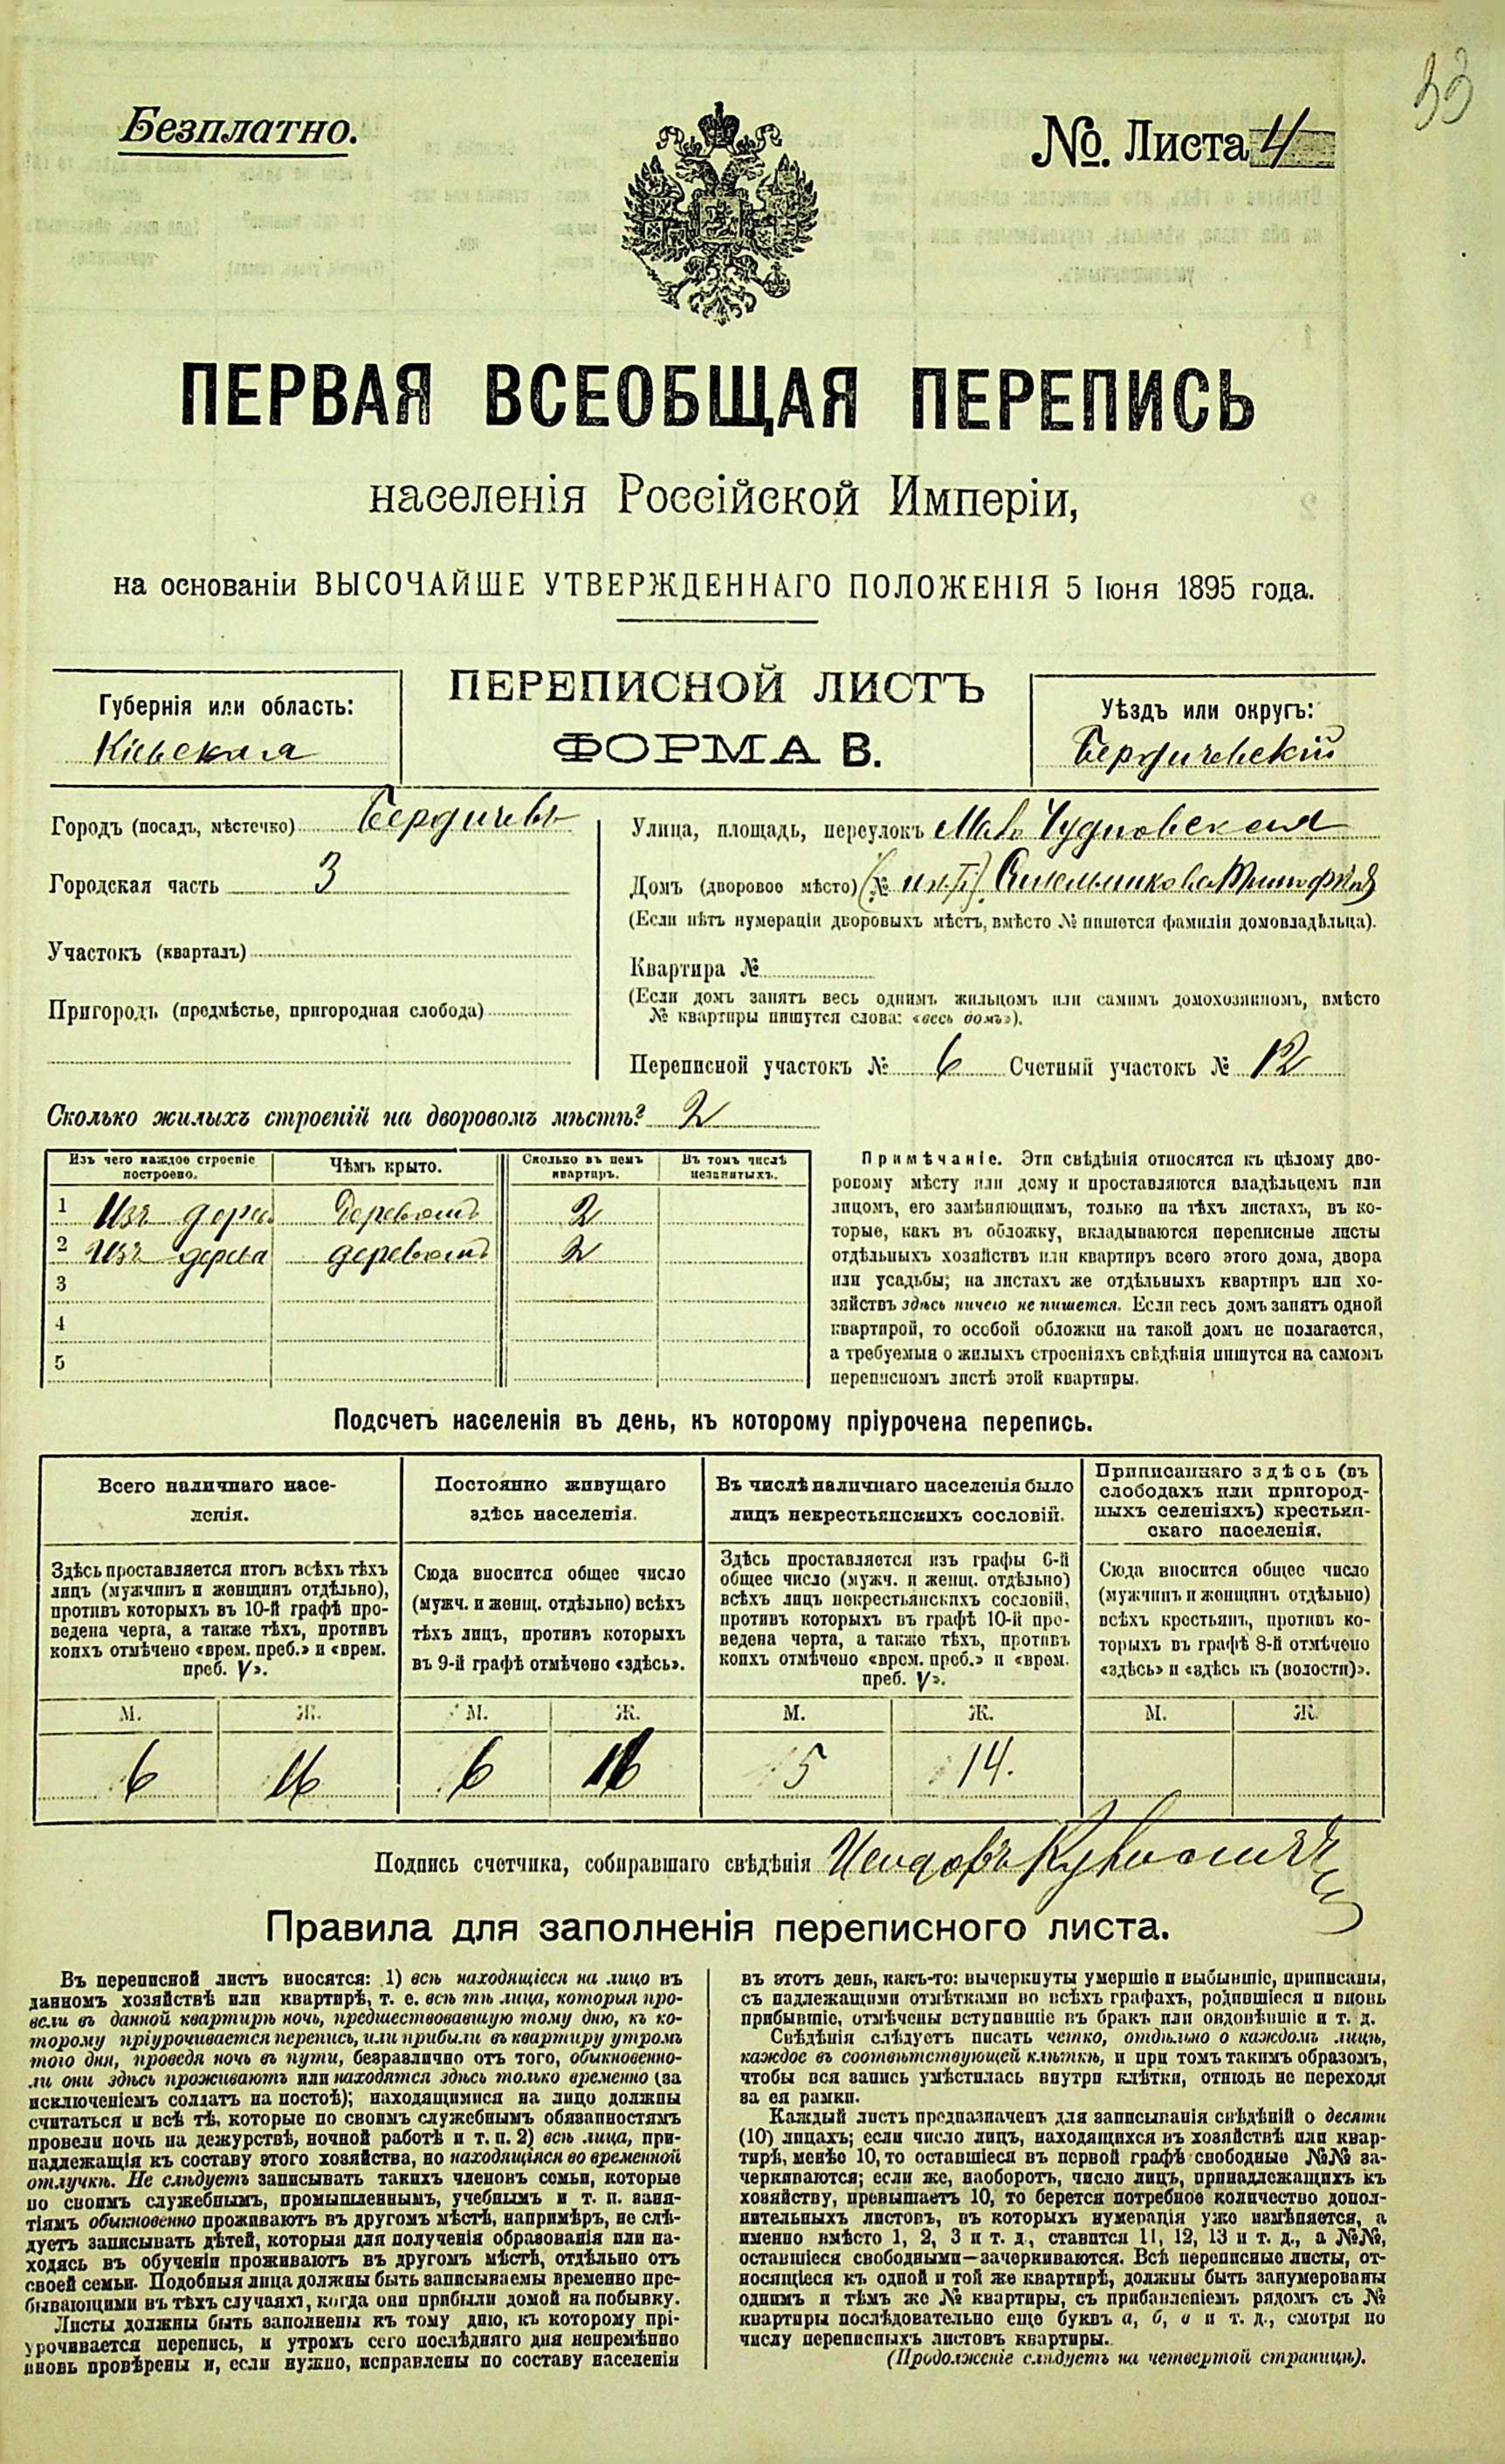 33
Безплатно.
№. Листа 4
ПЕРВАЯ ВСЕОБЩАЯ ПЕРЕПИСЬ
населенія Россійской Имперіи,
на основаніи ВЫСОЧАЙШЕ УТВЕРЖДЕННАГО ПОЛОЖЕНІЯ 5 Іюня 1895 года.
Губернія или область:
Кіевская
ПЕРЕПИСНОЙ ЛИСТЪ
ФОРМА В.
Уѣздъ или округъ:
Бердичевскій
Городъ (посадъ, мѣстечко) Бердичевъ
Городская часть 3
Участокъ (кварталъ)
Пригородъ (предмѣстье, пригородная слобода)
Улица, площадь, переулокъ Мало Чудновская
Домъ (дворовое мѣсто) (№
(Если нѣтъ нумераціи дворовыхъ мѣстъ, вмѣсто № пишется фамилія домовладѣльца).
Квартира №
(Если домъ занятъ весь однимъ жильцомъ или самимъ домохозяиномъ, вмѣсто
№ квартиры пишутся слова: «весь домъ»).
Переписной участокъ № 6 Счетный участокъ № 12
Сколько жилыхъ строеній на дворовомъ мѣстѣ? 2
Изъ чего каждое строеніе построено. Чѣмъ крыто. Сколько въ немъ квартиръ. Въ томъ числѣ незанятыхъ.
1 Изъ дерева деревомъ 2
2 Изъ дерева деревомъ 2
3
4
5
Примѣчаніе. Эти свѣдѣнія относятся къ цѣлому дво-
ровому мѣсту или дому и проставляются владѣльцемъ или
лицомъ, его замѣняющимъ, только на тѣхъ листахъ, въ ко-
торые, какъ въ обложку, вкладываются переписные листы
отдѣльныхъ хозяйствъ или квартиръ всего этого дома, двора
или усадьбы; на листахъ же отдѣльныхъ квартиръ или хо-
зяйствъ здѣсь ничего не пишется. Если весь домъ занятъ одной
квартирой, то особой обложки на такой домъ не полагается,
а требуемыя о жилыхъ строеніяхъ свѣдѣнія пишутся на самомъ
переписномъ листѣ этой квартиры.
Подсчетъ населенія въ день, къ которому пріурочена перепись.
Всего наличнаго насе-
ленія.
Здѣсь проставляется итогъ всѣхъ тѣхъ
лицъ (мужчинъ и женщинъ отдѣльно),
противъ которыхъ въ 10-й графѣ про-
ведена черта, а также тѣхъ, противъ
коихъ отмѣчено «врем. преб.» и «врем.
преб. V».
М. Ж.
6 16
Постоянно живущаго
здѣсь населенія.
Сюда вносится общее число
(мужч. и женщ. отдѣльно) всѣхъ
тѣхъ лицъ, противъ которыхъ
въ 9-й графѣ отмѣчено «здѣсь».
М. Ж.
6 16
Въ числѣ наличнаго населенія было
лицъ некрестьянскихъ сословій.
Здѣсь проставляется изъ графы 6-й
общее число (мужч. и женщ. отдѣльно)
всѣхъ лицъ некрестьянскихъ сословій,
противъ которыхъ въ графѣ 10-й про-
ведена черта, а также тѣхъ, противъ
коихъ отмѣчено «врем. преб.» и «врем.
преб. V».
М. Ж.
5 14.
Приписаннаго здѣсь (въ
слободахъ или пригород-
ныхъ селеніяхъ) крестьян-
скаго населенія.
Сюда вносится общее число
(мужчинъ и женщинъ отдѣльно)
всѣхъ крестьянъ, противъ ко-
торыхъ въ графѣ 8-й отмѣчено
«здѣсь» и «здѣсь къ (волости)».
М. Ж.
Подпись счетчика, собиравшаго свѣдѣнія
Правила для заполненія переписного листа.
Въ переписной листъ вносятся: 1) всѣ находящіеся на лицо въ
данномъ хозяйствѣ или квартирѣ, т. е. всѣ тѣ лица, которыя про-
вели въ данной квартирѣ ночь, предшествовавшую тому дню, къ ко-
торому пріурочивается перепись, или прибыли въ квартиру утромъ
того дня, проведя ночь въ пути, безразлично отъ того, обыкновенно-
ли они здѣсь проживаютъ или находятся здѣсь только временно (за
исключеніемъ солдатъ на постоѣ); находящимися на лицо должны
считаться и всѣ тѣ, которые по своимъ служебнымъ обязанностямъ
провели ночь на дежурствѣ, ночной работѣ и т. п. 2) всѣ лица, при-
надлежащія къ составу этого хозяйства, но находящіяся во временной
отлучкѣ. Не слѣдуетъ записывать такихъ членовъ семьи, которые
по своимъ служебнымъ, промышленнымъ, учебнымъ и т. п. заня-
тіямъ обыкновенно проживаютъ въ другомъ мѣстѣ, напримѣръ, не слѣ-
дуетъ записывать дѣтей, которыя для полученія образованія или на-
ходясь въ обученіи проживаютъ въ другомъ мѣстѣ, отдѣльно отъ
своей семьи. Подобныя лица должны быть записываемы временно пре-
бывающими въ тѣхъ случаяхъ, когда они прибыли домой на побывку.
Листы должны быть заполнены къ тому дню, къ которому прі-
урочивается перепись, и утромъ сего послѣдняго дня непремѣнно
вновь провѣрены и, если нужно, исправлены по составу населенія
въ этотъ день, какъ-то: вычеркнуты умершіе и выбывшіе, приписаны,
съ надлежащими отмѣтками во всѣхъ графахъ, родившіеся и вновь
прибывшіе, отмѣчены вступившіе въ бракъ или овдовѣвшіе и т. д.
Свѣдѣнія слѣдуетъ писать четко, отдѣльно о каждомъ лицѣ,
каждое въ соотвѣтствующей клѣткѣ, и при томъ такимъ образомъ,
чтобы вся запись умѣстилась внутри клѣтки, отнюдь не переходя
за ея рамки.
Каждый листъ предназначенъ для записыванія свѣдѣній о десяти
(10) лицахъ; если число лицъ, находящихся въ хозяйствѣ или квар-
тирѣ, менѣе 10, то оставшіеся въ первой графѣ свободные №№ за-
черкиваются; если же, наоборотъ, число лицъ, принадлежащихъ къ
хозяйству, превышаетъ 10, то берется потребное количество допол-
нительныхъ листовъ, въ которыхъ нумерація уже измѣняется, а
именно вмѣсто 1, 2, 3 и т. д., ставится 11, 12, 13 и т. д., а №№,
оставшіеся свободными—зачеркиваются. Всѣ переписные листы, от-
носящіеся къ одной и той же квартирѣ, должны быть занумерованы
однимъ и тѣмъ же № квартиры, съ прибавленіемъ рядомъ съ №
квартиры послѣдовательно еще буквъ а, б, в и т. д., смотря по
числу переписныхъ листовъ квартиры.
(Продолженіе слѣдуетъ на четвертой страницѣ).